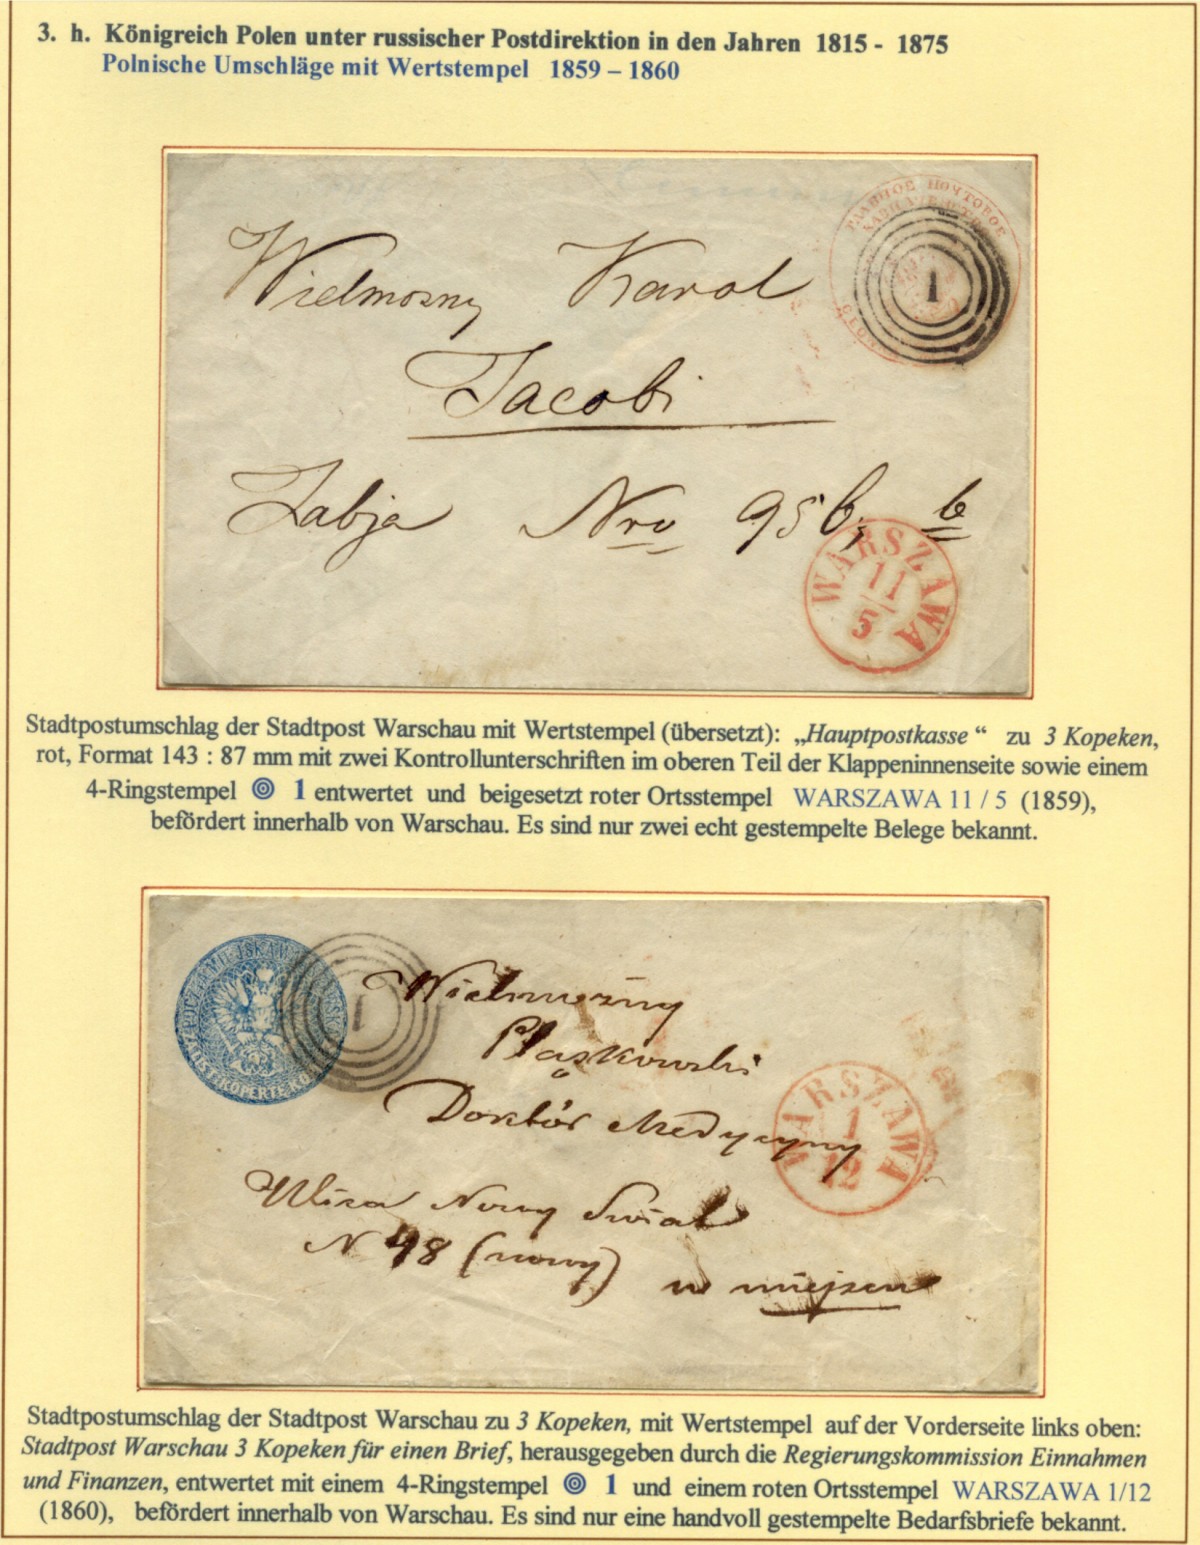 3. h. Königreich Polen unter russischer Postdirektion in den Jahren 1815 - 1875
Polnische Umschläge mit Wertstempel 1859 – 1860
ГЛАВНОЕ ПОЧТОВОЕ
1
Wielmożny Karol
Jacobi
Żabja Nro 956, b
WARSZAWA
11
5
Stadtpostumschlag der Stadtpost Warschau mit Wertstempel (übersetzt): „Hauptpostkasse “ zu 3 Kopeken,
rot, Format 143 : 87 mm mit zwei Kontrollunterschriften im oberen Teil der Klappeninnenseite sowie einem
4-Ringstempel 1 entwertet und beigesetzt roter Ortsstempel WARSZAWA 11 / 5 (1859),
befördert innerhalb von Warschau. Es sind nur zwei echt gestempelte Belege bekannt.
POCZTA MIEJSKA
ZA 1 LIST. KOPERTE. KOP.
1
Wielmożny
Płaskowski
Doktór Medycyny
Ulica Nowy Świat
N 48 (nowy)
w miejscu
WARSZAWA
1
12
Stadtpostumschlag der Stadtpost Warschau zu 3 Kopeken, mit Wertstempel auf der Vorderseite links oben:
Stadtpost Warschau 3 Kopeken für einen Brief, herausgegeben durch die Regierungskommission Einnahmen
und Finanzen, entwertet mit einem 4-Ringstempel 1 und einem roten Ortsstempel WARSZAWA 1/12
(1860), befördert innerhalb von Warschau. Es sind nur eine handvoll gestempelte Bedarfsbriefe bekannt.